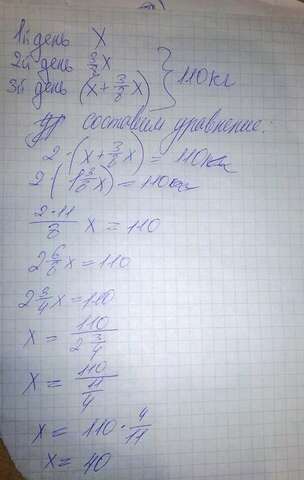 1й день X
2й день 3/8 X
3й день (X + 3/8 X) } 110 кг
составим уравнение:
2·(X + 3/8 X) = 110 кг
2·(1 3/8 X) = 110 кг
2·11/8 X = 110
2 6/8 X = 110
2 3/4 X = 110
X = 110/(2 3/4)
X = 110/(11/4)
X = 110 · 4/11
X = 40